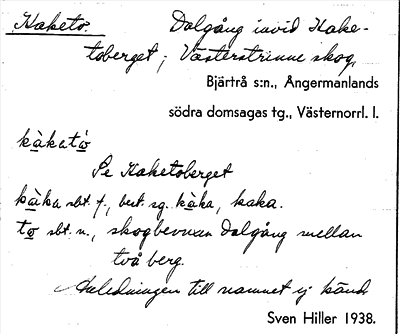 Kaketo. Dalgång invid Kake-
toberget; Västerstrinne skog,
Bjärtrå s:n., Ångermanlands
södra domsagas tg., Västernorrl. l.
kàkató
Se Kaketoberget
kàka sbt. f., best. sg. kàka, kaka.
to sbt. n., skogbevuxen dalgång mellan
två berg.
Anledningen till namnet ej känd.
Sven Hiller 1938.